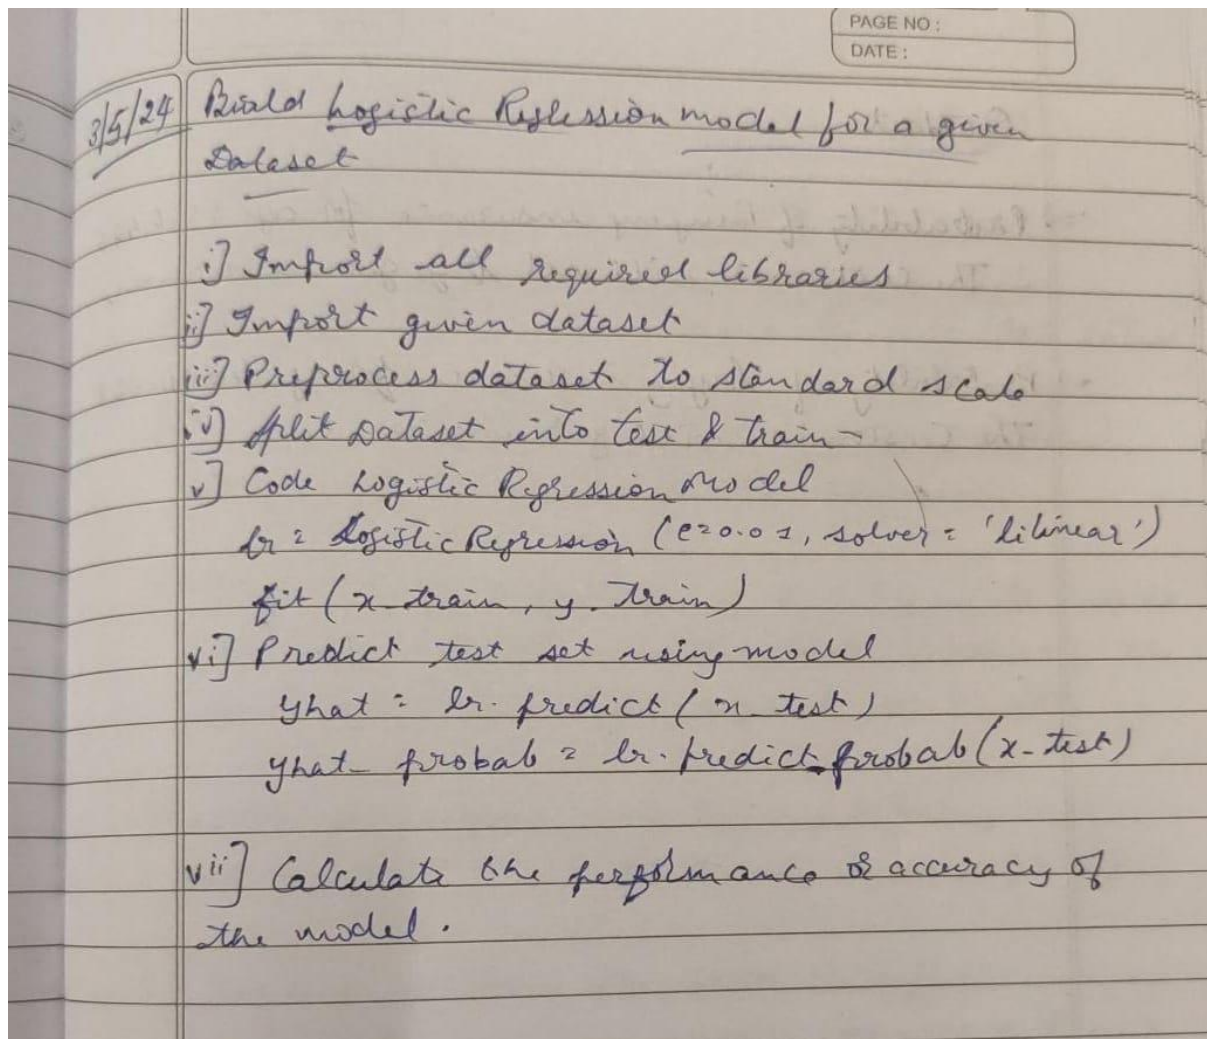 PAGE NO :
DATE :
3/5/24 Build Logistic Regression model for a given
Dataset
i] Import all required libraries
ii] Import given dataset
iii] Preprocess dataset to standard scale
iv] Split Dataset into test & train
v] Code Logistic Regression Model
lr = Logistic Regression (C=0.01, solver = 'lilinear')
fit (x_train, y_train)
vi] Predict test set using model
yhat = lr. predict (x_test)
yhat_ probab = lr. predict_probab (x_test)
vii] Calculate the performance & accuracy of
the model.